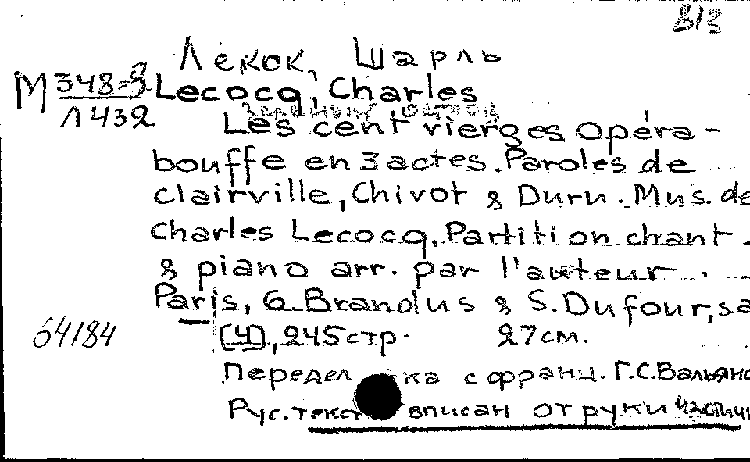 813
Лекок, Шарль
М 348-3 Lecocq, Charles
Л432
Les cent vierges Opéra-
bouffe en 3 actes. Paroles de
Clairville, Chivot & Duru. Mus. de
Charles Lecocq. Partition chant
& piano arr. par l'auteur
Paris, G. Brandus & S. Dufour, sa
64184 [4], 245 стр. 27 см.
Передел ка с франц. Г.С. Вальяно
Рус. текст вписан от руки частич